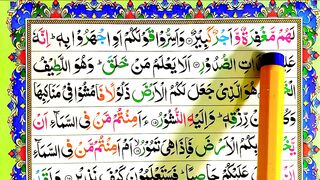 لَهُمْ مَّغْفِرَةٌ وَّ اَجْرٌ كَبِيْرٌ وَ اَسِرُّوْا قَوْلَكُمْ اَوِ اجْهَرُوْا بِهٖ اِنَّهٗ
الصُّدُوْرِ اَلَا يَعْلَمُ مَنْ خَلَقَ وَ هُوَ اللَّطِيْفُ
هُوَ الَّذِيْ جَعَلَ لَكُمُ الْاَرْضَ ذَلُوْلًا فَامْشُوْا فِيْ مَنَاكِبِهَا
وَ كُلُوْا مِنْ رِّزْقِهٖ وَ اِلَيْهِ النُّشُوْرُ ءَاَمِنْتُمْ مَّنْ فِي السَّمَآءِ اَنْ
بِكُمُ الْاَرْضَ فَاِذَا هِيَ تَمُوْرُ اَمْ اَمِنْتُمْ مَّنْ فِي السَّمَآءِ
عَلَيْكُمْ حَاصِبًا فَسَتَعْلَمُوْنَ كَيْفَ نَذِيْرِ وَ لَقَدْ